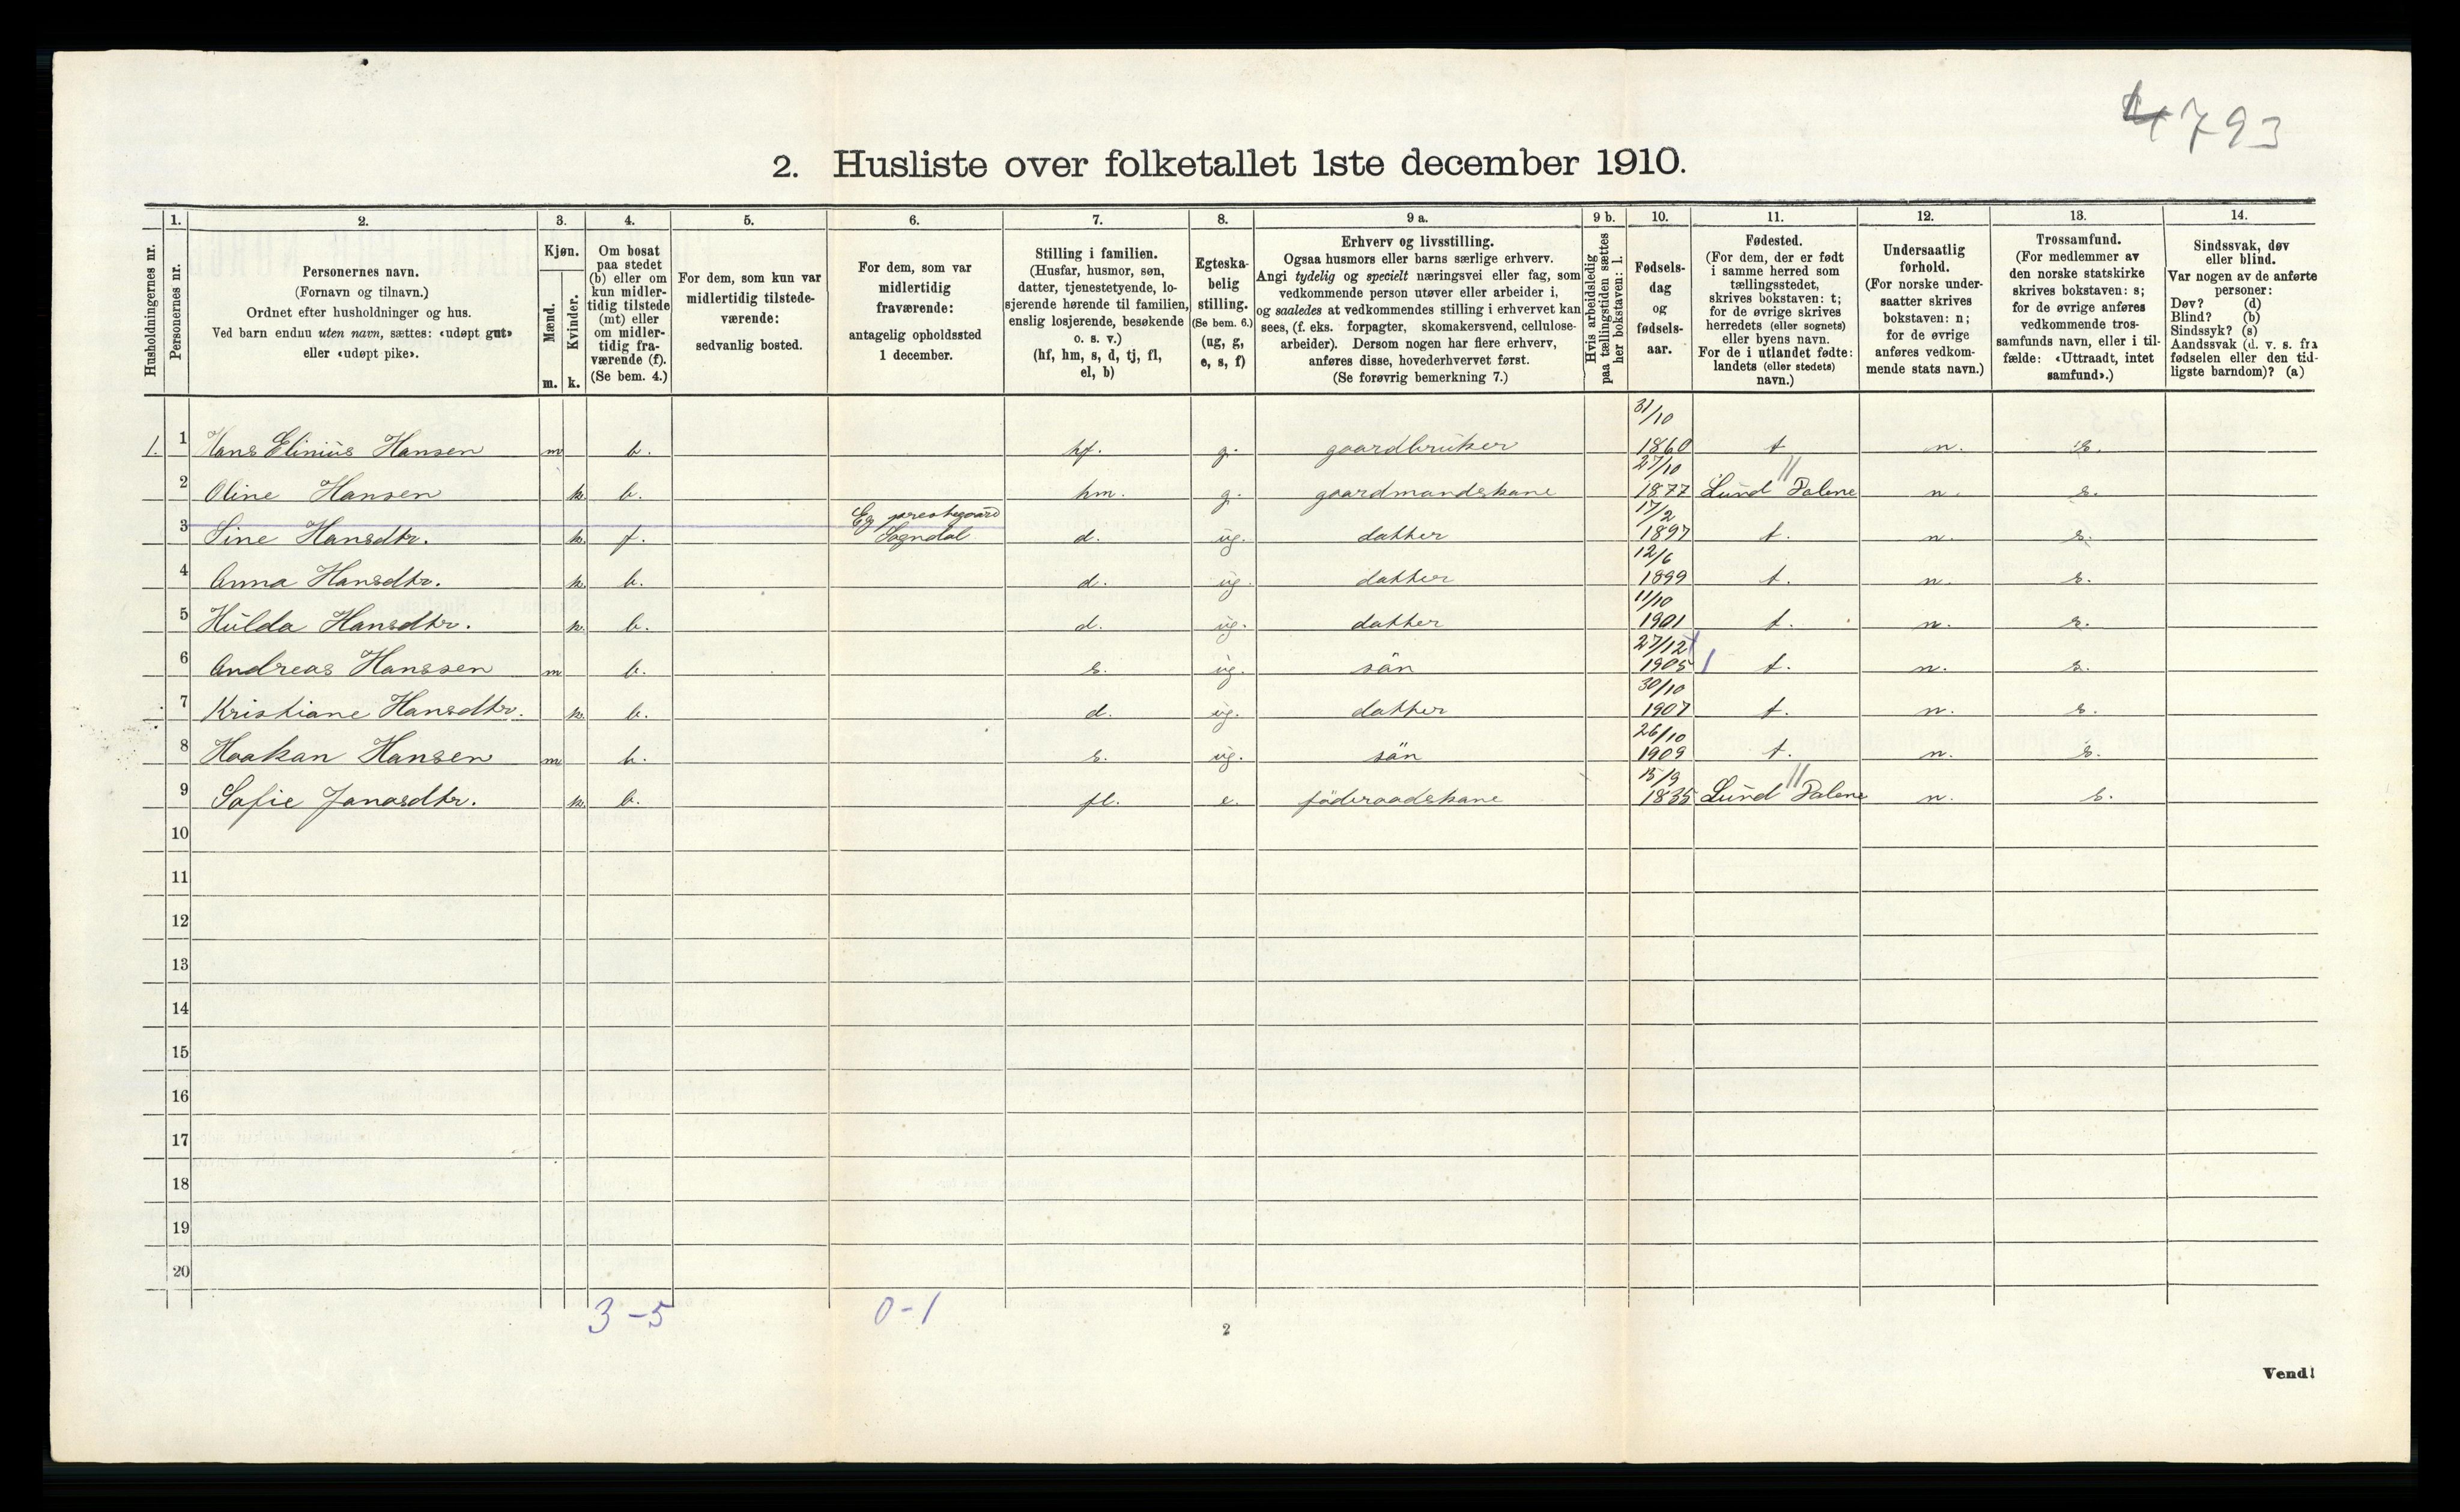 4 793
2. Husliste over folketallet 1ste december 1910.
Husholdningernes nr.
1. Personernes nr.
2. Personernes navn.
(Fornavn og tilnavn.)
Ordnet efter husholdninger og hus.
Ved barn endnu uten navn, sættes: «udøpt gut»
eller «udøpt pike».
3. Kjøn.
Mænd. m.
Kvinder. k.
4. Om bosat
paa stedet
(b) eller om
kun midler-
tidig tilstede
(mt) eller
om midler-
tidig fra-
værende (f).
(Se bem. 4.)
5. For dem, som kun var
midlertidig tilstede-
værende:
sedvanlig bosted.
6. For dem, som var
midlertidig
fraværende:
antagelig opholdssted
1 december.
7. Stilling i familien.
(Husfar, husmor, søn,
datter, tjenestetyende, lo-
sjerende hørende til familien,
enslig losjerende, besøkende
o. s. v.)
(hf, hm, s, d, tj, fl,
el, b)
8. Egteska-
belig
stilling.
(Se bem. 6.)
(ug, g,
e, s, f)
9 a. Erhverv og livsstilling.
Ogsaa husmors eller barns særlige erhverv.
Angi tydelig og specielt næringsvei eller fag, som
vedkommende person utøver eller arbeider i,
og saaledes at vedkommendes stilling i erhvervet kan
sees, (f. eks. forpagter, skomakersvend, cellulose-
arbeider). Dersom nogen har flere erhverv,
anføres disse, hovederhvervet først.
(Se forøvrig bemerkning 7.)
9 b. Hvis arbeidsledig
paa tællingstiden sættes
her bokstaven: l.
10. Fødsels-
dag
og
fødsels-
aar.
11. Fødested.
(For dem, der er født
i samme herred som
tællingsstedet,
skrives bokstaven: t;
for de øvrige skrives
herredets (eller sognets)
eller byens navn.
For de i utlandet fødte:
landets (eller stedets)
navn.)
12. Undersaatlig
forhold.
(For norske under-
saatter skrives
bokstaven: n;
for de øvrige
anføres vedkom-
mende stats navn.)
13. Trossamfund.
(For medlemmer av
den norske statskirke
skrives bokstaven: s;
for de øvrige anføres
vedkommende tros-
samfunds navn, eller i til-
fælde: «Uttraadt, intet
samfund».)
14. Sindssvak, døv
eller blind.
Var nogen av de anførte
personer:
Døv? (d)
Blind? (b)
Sindssyk? (s)
Aandssvak (d. v. s. fra
fødselen eller den tid-
ligste barndom)? (a)
1. 1 Hans Elinius Hansen m b. hf. g. gaardbruker 31/10 1860 t n. s.
2 Oline Hansen k. b. hm. g. gaardmandskane 27/10 1877 Lund // Dalene n. s.
3 Sine Hansdtr. k. f. Eg prestegaard Sogndal d. ug. datter 17/2 1897 t. n. s.
4 Anna Hansdtr. k. b. d. ug. datter 12/6 1899 t. n. s.
5 Hulda Hansdtr. k. b. d. ug. datter 11/10 1901 t. n. s.
6 Andreas Hanssen m b. s. ug. sön 27/12 1905 t. n. s.
7 Kristiane Hansdtr. k. b. d. ug. datter 30/10 1907 t. n. s.
8 Haakan Hansen m b. s. ug. sön 26/10 1909 t. n. s.
9 Sofie Janasdtr. k. b. fl. e. föderaadskane 15/9 1835 Lund // Dalene n. s.
10
11
12
13
14
15
16
17
18
19
20
3-5 0-1
2
Vend!